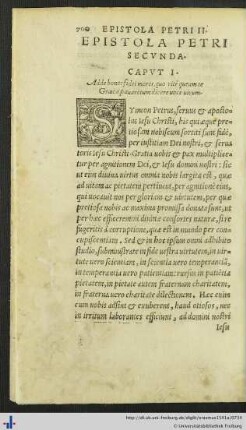 700 EPISTOLA PETRI II.
EPISTOLA PETRI
SECVNDA.
CAPVT I.
SYmon Petrus, seruus & apostolus
Iesu Christi, his qui æque
nobiscum sortiti sunt fidē,
per iustitiam Dei nostri, & serua
toris Iesu Christi. Gratia vobis & pax multiplice
tur per agnitionem Dei, & Iesu domini nostri: si
cut eius diuina virtus omnia nobis largita est, quæ
ad vitam ac pietatem pertinent, per agnitionē eius,
qui vocauit nos per gloriam & virtutem, per quæ
pretiosa nobis ac maxima promissa donata sunt, ut
per hæc efficeremini diuinæ consortes naturæ, si re
fugeritis à corruptione, quæ est in mundo per con
cupiscentiam. Sed & in hoc ipsum omni adhibito
studio, subministrate in fide vestra virtutem, in vir
tute vero scientiam, in scientia vero temperantiā,
in temperantia vero patientiam: rursus in patientia
pietatem, in pietate autem fraternam charitatem,
in fraterna vero charitate dilectionem. Hæc enim
cum vobis adsint & exuberent, haud otiosos, nec
in irritum laborantes efficient, ad domini nostri
Iesu
© Universitätsbibliothek Freiburg